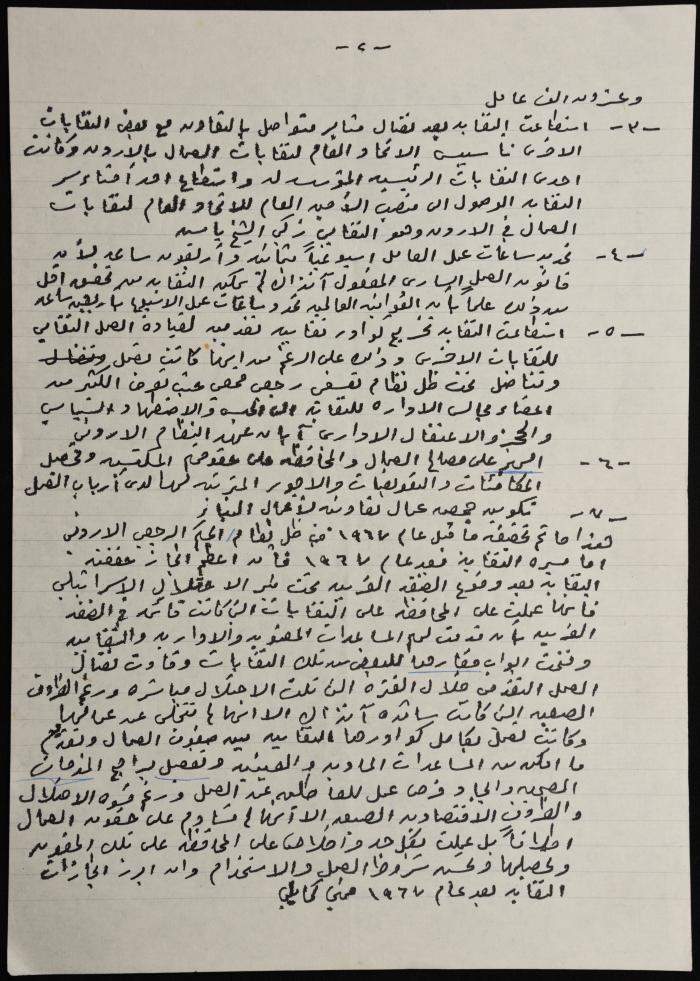 - ٢ -
وعشرون الف عامل
-٣- استطاعت النقابه بعد نضال مثابر متواصل بالتعاون مع بعض النقابات
الاخرى تأسيس الاتحاد العام لنقابات العمال بالاردن وكانت
احدى النقابات الرئيسيه المؤسسه له واستطاع احد امناء سر
النقابه الوصول الى منصب الأمين العام للاتحاد العام لنقابات
العمال في الاردن وهو النقابي زكي الشيخ ياسين
-٤- تحديد ساعات عمل العامل اسبوعياً بثمانيه وأربعون ساعه لأن
قانون العمل الساري المفعول آنذاك لم يمكن النقابه من تحقيق اقل
من ذلك علماً بأن القوانين العالميه تحدد ساعات عمل الاسبوع باربعين ساعه
-٥- استطاعت النقابه تخريج كوادر نقابيه تقدميه لقيادة العمل النقابي
للنقابات الاخرى وذلك على الرغم من انها كانت تعمل وتناضل
وتناضل تحت ظل نظام تعسفي رجعي قمعي عشائري الكثير من
اعضاء مجالس الاداره للنقابه الى الحبس والاضطهاد السياسي
والحجز والاعتقال الاداري آبان عهد النظام الاردني
-٦- السهر على مصالح العمال والمحافظه على حقوقهم المكتسبه وتحصيل
المكافئات والتعويضات والاجور المترتبه لهم لدى أرباب العمل
-٧- تكوين جمعيه عمال تعاونيه لأعمال البناء
هذا ما تم تحقيقه ما قبل عام ١٩٦٧ في ظل نظام الحكم الرجعي الاردني
اما مسيره النقابة فبعد عام ١٩٦٧ فان اعظم انجاز حققته
النقابه بعد وقوع الضفه الغربيه تحت نير الاحتلال الإسرائيلي
فانها عملت على المحافظه على النقابات التي كانت قائمه في الضفه
الغربيه بأن قدمت لهم المساعدات المعنويه والاداريه والنقابيه
وفتحت ابواب مقارها للبعض من تلك النقابات وقادت نضال
العمل النقابي خلال الفتره التي تلت الاحتلال مباشره ورغم الظروف
الصعبه التي كانت سائده آنذاك الا انها لم تتخلى عن عمالها
وكانت تعمل بكامل كوادرها النقابيه بين صفوف العمال وتقديم
ما امكن من المساعدات الماديه والعينيه وتفعيل برامج الخدمات
الصحيه وايجاد فرص عمل للعاطلين عن العمل ورغم قسوه الاحتلال
والظروف الاقتصاديه الصعبه الا انها لم تساوم على حقوق العمال
اطلاقاً بل عملت بكل جد واخلاص على المحافظه على تلك الحقوق
وتحصيلها وتحسين شروط العمل والاستخدام وان ابرز انجازات
النقابه بعد عام ١٩٦٧ هي كما يلي